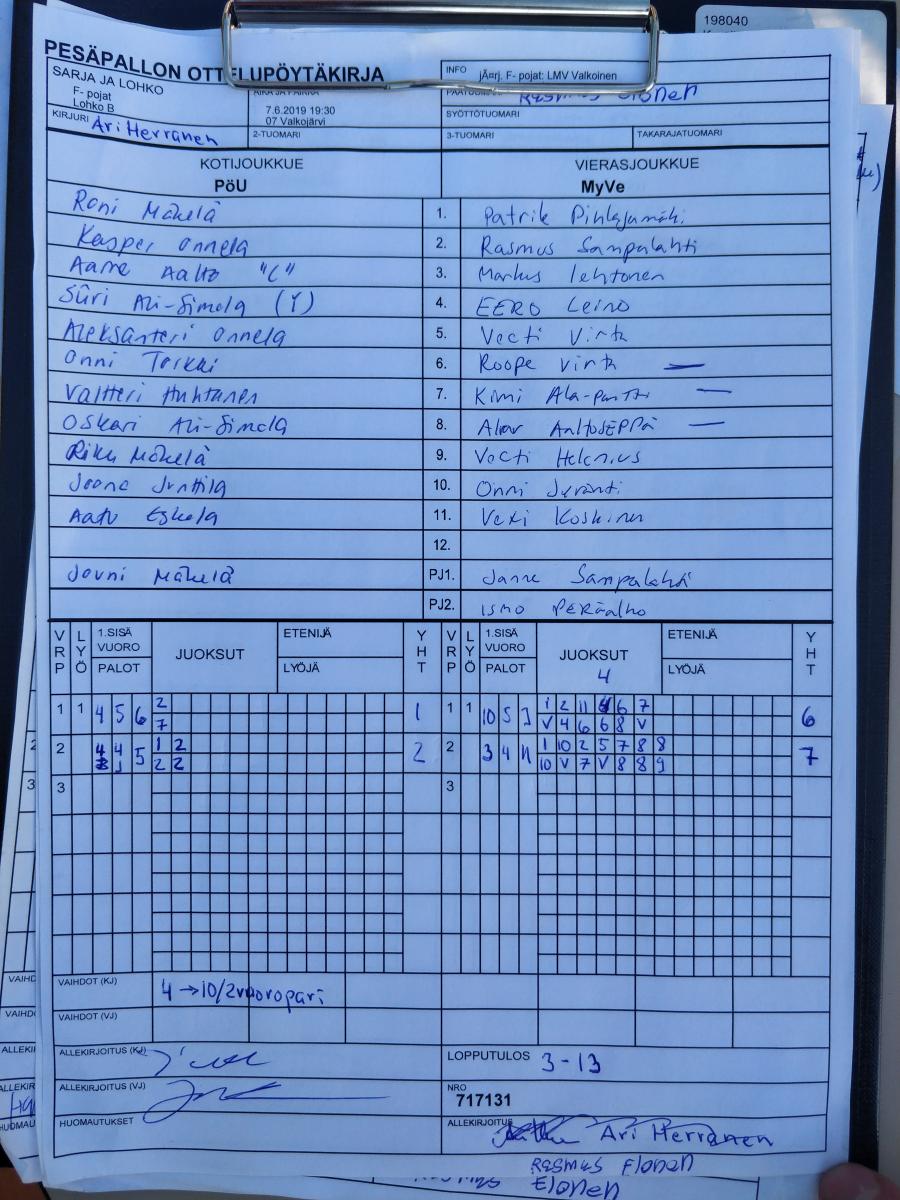 198040
PESÄPALLON OTTELUPÖYTÄKIRJA
SARJA JA LOHKO
F- pojat
Lohko B
INFO jÃ¤rj. F- pojat: LMV Valkoinen
7.6.2019 19:30
07 Valkojärvi
Rasmus Elonen
SYÖTTÖTUOMARI
KIRJURI Ari Herranen
2-TUOMARI
3-TUOMARI
TAKARAJATUOMARI
KOTIJOUKKUE
PöU
VIERASJOUKKUE
MyVe
Roni Mäkelä 1. Patrik Pihlajamäki
Kasper Onnela 2. Rasmus Sampalahti
Aarre Aalto "C" 3. Markus Lehtonen
Siiri Ali-Simola (T) 4. EERO Leino
Aleksanteri Onnela 5. Veeti Virta
Onni Torkki 6. Roope Virta —
Valtteri Huhtanen 7. Kimi —
Oskari Ali-Simola 8. AaltoSEPPÄ —
Riku Mäkelä 9. Veeti Helenius
Joona Junttila 10. Onni Jyränti
Aatu Eskola 11. Vexi Koskinen
12.
Jouni Mäkelä PJ1. Janne Sampalahti
PJ2. ismo PERÄalho
VRP LYÖ 1.SISÄ VUORO PALOT JUOKSUT ETENIJÄ LYÖJÄ YHT
VRP LYÖ 1.SISÄ VUORO PALOT JUOKSUT 4 ETENIJÄ LYÖJÄ YHT
1 1 4 5 6 2 1
7
1 1 10 5 1 2 11 6 7 6
V 4 6 6 8 V
2 4 5 1 2 2
2 2
2 3 4 11 1 10 2 5 7 8 8 7
10 V 7 V 8 8 9
3
3
VAIHDOT (KJ) 4 →10/2vuoropari
VAIHDOT (VJ)
ALLEKIRJOITUS (KJ)
LOPPUTULOS 3-13
ALLEKIRJOITUS (VJ)
NRO
717131
HUOMAUTUKSET
ALLEKIRJOITUS Ari Herranen
Rasmus Elonen
Elonen